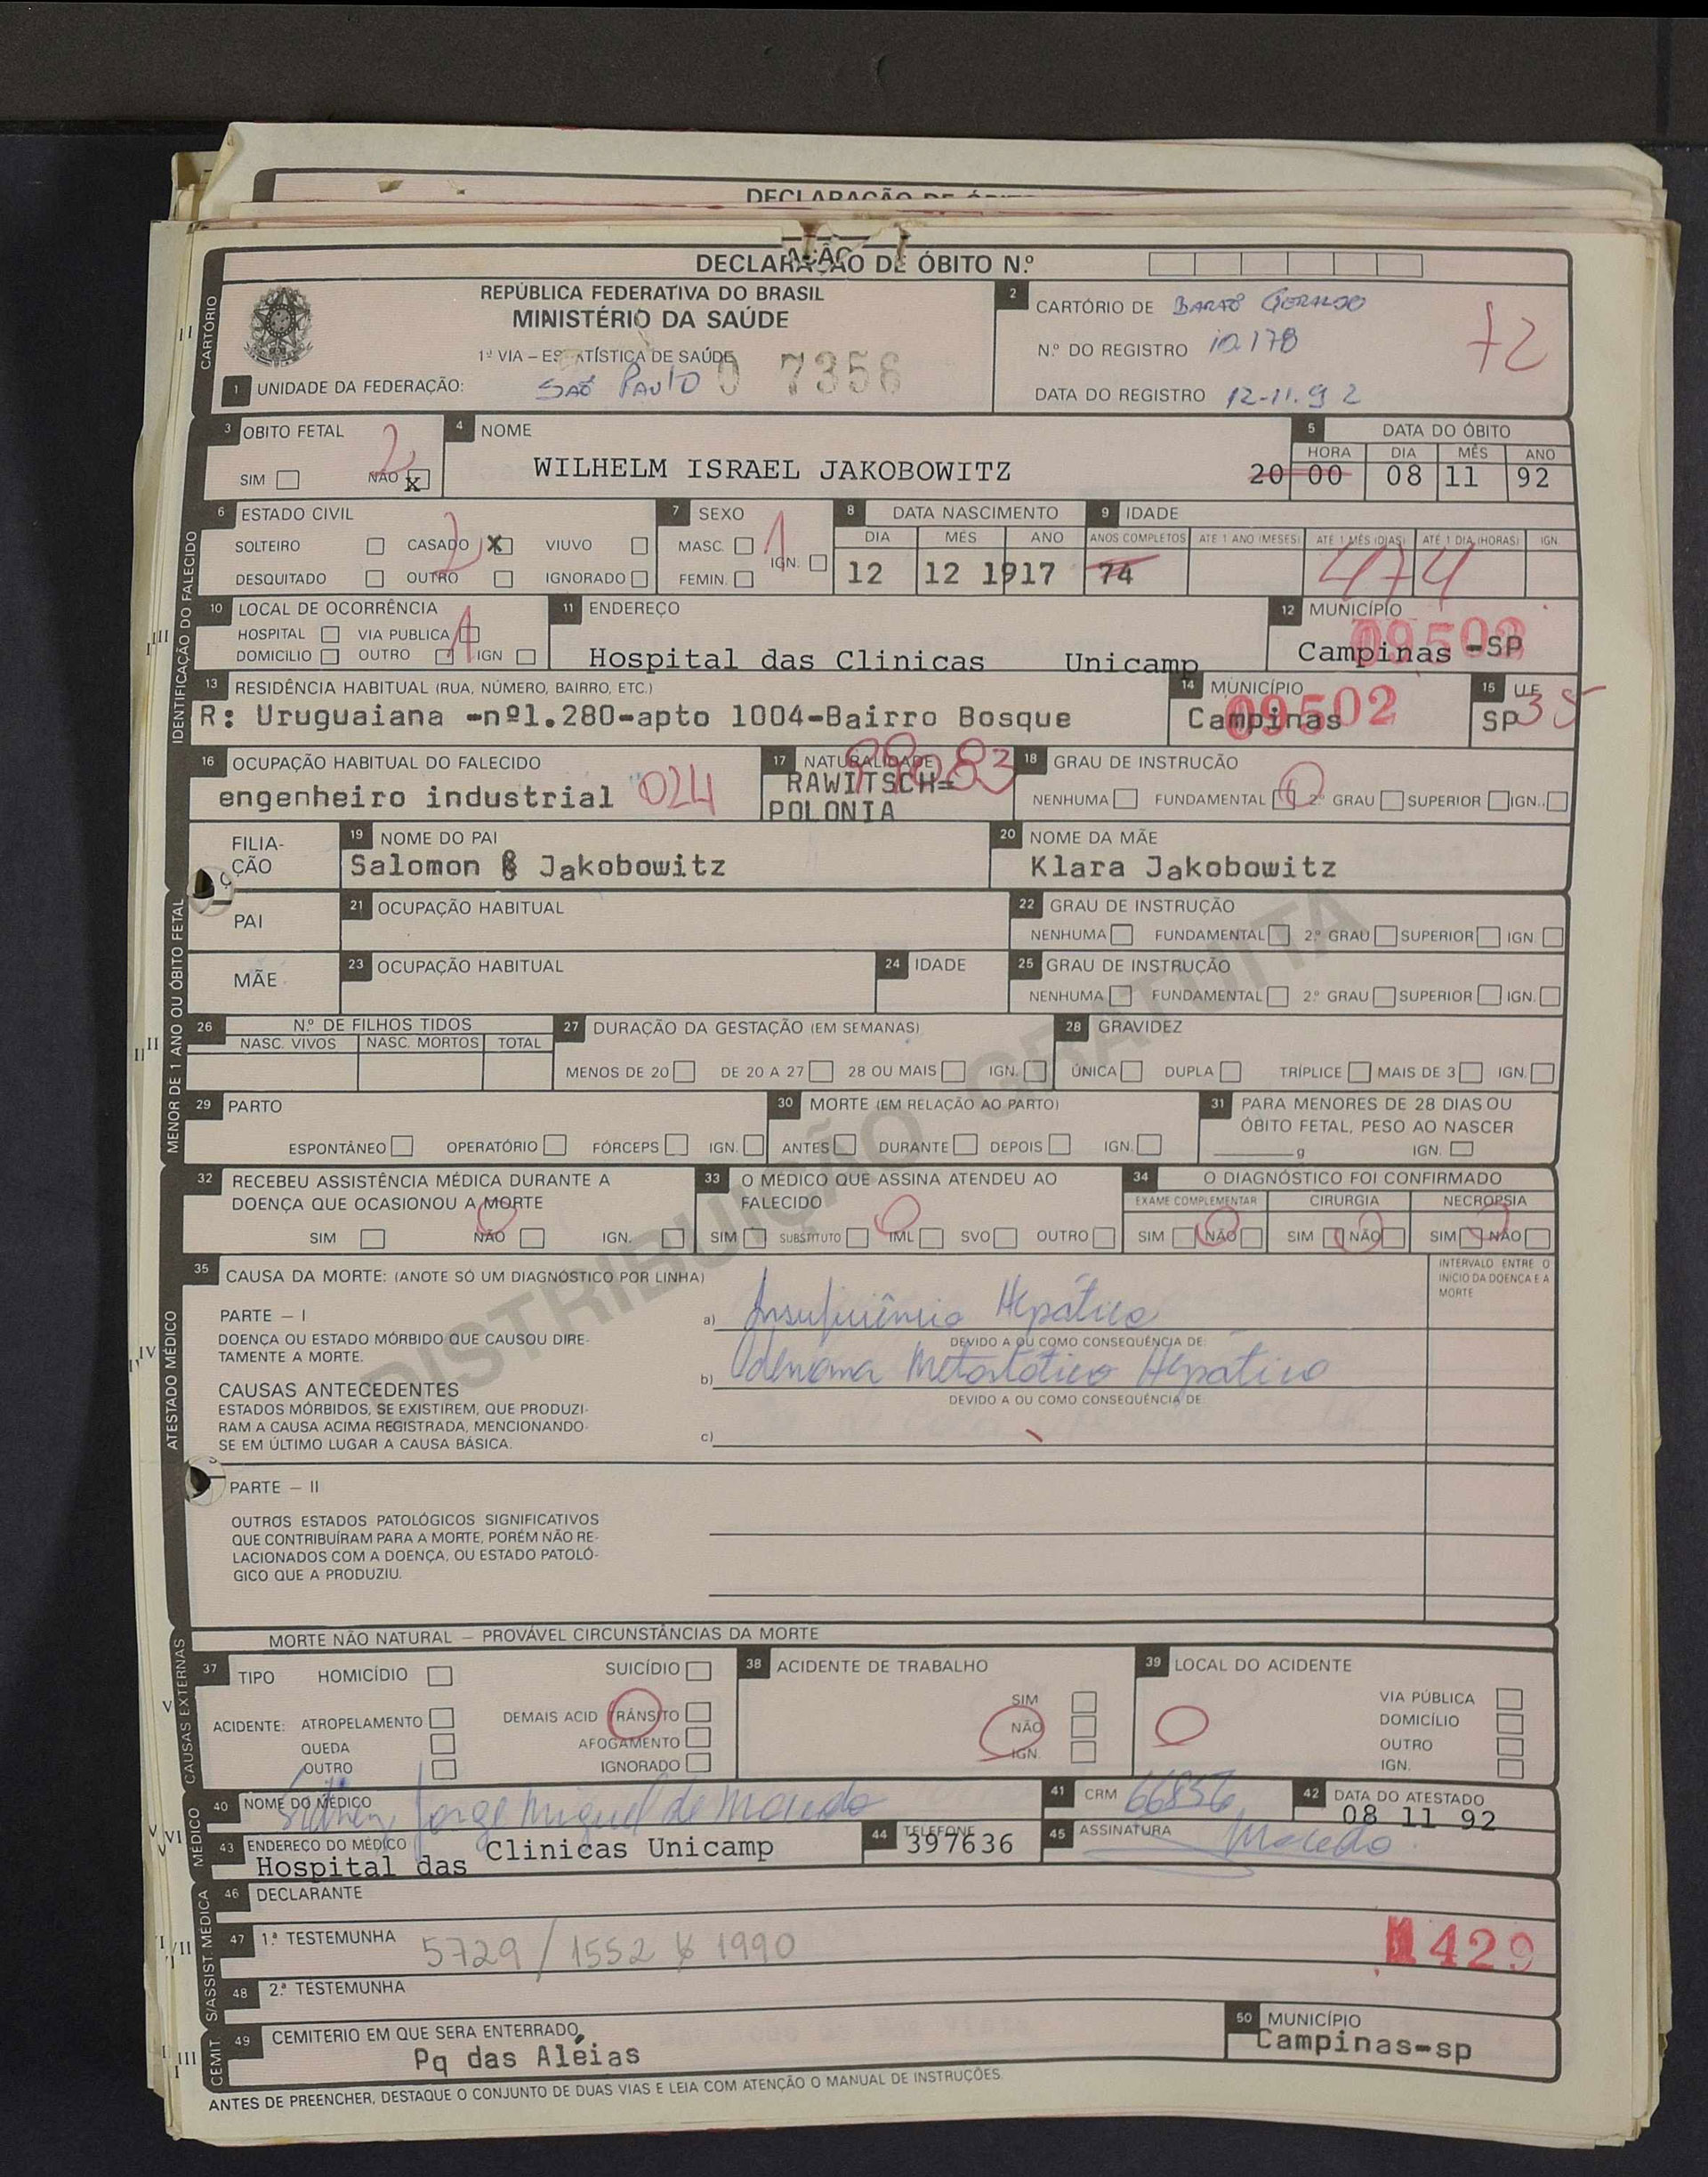 DECLARAÇÃO DE ÓBITO N.º
CARTÓRIO
REPÚBLICA FEDERATIVA DO BRASIL
MINISTÉRIO DA SAÚDE
1ª VIA – ESTATÍSTICA DE SAÚDE
0 7356
1 UNIDADE DA FEDERAÇÃO: SAÕ PAULO
2 CARTÓRIO DE BARAÕ GERALDO
N.º DO REGISTRO 10.178
DATA DO REGISTRO 12-11.92
72
IDENTIFICAÇÃO DO FALECIDO
3 OBITO FETAL
SIM NÃO x 2
4 NOME
WILHELM ISRAEL JAKOBOWITZ
5 DATA DO ÓBITO
HORA DIA MÊS ANO
20 00 08 11 92
6 ESTADO CIVIL
SOLTEIRO CASADO X VIUVO
DESQUITADO OUTRO IGNORADO
2
7 SEXO
MASC. IGN.
FEMIN.
1
8 DATA NASCIMENTO
DIA MÊS ANO
12 12 1917
9 IDADE
ANOS COMPLETOS ATÉ 1 ANO (MESES) ATÉ 1 MÊS (DIAS) ATÉ 1 DIA (HORAS) IGN.
74 474
10 LOCAL DE OCORRÊNCIA
HOSPITAL VIA PUBLICA
DOMICILIO OUTRO IGN
1
11 ENDEREÇO
Hospital das Clinicas Unicamp
12 MUNICÍPIO
09502
Campinas -SP
13 RESIDÊNCIA HABITUAL (RUA, NÚMERO, BAIRRO, ETC.)
R: Uruguaiana -nº1.280-apto 1004-Bairro Bosque
14 MUNICÍPIO
Campinas 09502
15 UF
SP 35
16 OCUPAÇÃO HABITUAL DO FALECIDO
engenheiro industrial 024
17 NATURALIDADE
RAWITSCH=
POLONIA
18 GRAU DE INSTRUCÃO
NENHUMA FUNDAMENTAL 2º GRAU SUPERIOR IGN.
FILIA-
ÇÃO
19 NOME DO PAI
Salomon Jakobowitz
20 NOME DA MÃE
Klara Jakobowitz
MENOR DE 1 ANO OU ÓBITO FETAL
PAI
21 OCUPAÇÃO HABITUAL
22 GRAU DE INSTRUÇÃO
NENHUMA FUNDAMENTAL 2.º GRAU SUPERIOR IGN.
MÃE
23 OCUPAÇÃO HABITUAL
24 IDADE
25 GRAU DE INSTRUÇÃO
NENHUMA FUNDAMENTAL 2.º GRAU SUPERIOR IGN.
26 N.º DE FILHOS TIDOS
NASC. VIVOS NASC. MORTOS TOTAL
27 DURAÇÃO DA GESTAÇÃO (EM SEMANAS)
MENOS DE 20 DE 20 A 27 28 OU MAIS IGN.
28 GRAVIDEZ
ÚNICA DUPLA TRÍPLICE MAIS DE 3 IGN.
29 PARTO
ESPONTÂNEO OPERATÓRIO FÓRCEPS IGN.
30 MORTE (EM RELAÇÃO AO PARTO)
ANTES DURANTE DEPOIS IGN.
31 PARA MENORES DE 28 DIAS OU
ÓBITO FETAL, PESO AO NASCER
g IGN.
DISTRIBUIÇÃO GRATUITA
ATESTADO MÉDICO
32 RECEBEU ASSISTÊNCIA MÉDICA DURANTE A
DOENÇA QUE OCASIONOU A MORTE
SIM NÃO IGN.
33 O MÉDICO QUE ASSINA ATENDEU AO
FALECIDO
SIM SUBSTITUTO IML SVO OUTRO
34 O DIAGNÓSTICO FOI CONFIRMADO
EXAME COMPLEMENTAR CIRURGIA NECROPSIA
SIM NÃO SIM NÃO SIM NÃO
35 CAUSA DA MORTE: (ANOTE SÓ UM DIAGNÓSTICO POR LINHA)
INTERVALO ENTRE O
INÍCIO DA DOENÇA E A
MORTE
PARTE – I
DOENÇA OU ESTADO MÓRBIDO QUE CAUSOU DIRE-
TAMENTE A MORTE.
a) Insuficiência Hepática
DEVIDO A OU COMO CONSEQUÊNCIA DE:
b) Metastático Hepático
DEVIDO A OU COMO CONSEQUÊNCIA DE:
CAUSAS ANTECEDENTES
ESTADOS MÓRBIDOS, SE EXISTIREM, QUE PRODUZI-
RAM A CAUSA ACIMA REGISTRADA, MENCIONANDO-
SE EM ÚLTIMO LUGAR A CAUSA BÁSICA.
c)
PARTE – II
OUTROS ESTADOS PATOLÓGICOS SIGNIFICATIVOS
QUE CONTRIBUÍRAM PARA A MORTE, PORÉM NÃO RE-
LACIONADOS COM A DOENÇA, OU ESTADO PATOLÓ-
GICO QUE A PRODUZIU.
CAUSAS EXTERNAS
MORTE NÃO NATURAL – PROVÁVEL CIRCUNSTÂNCIAS DA MORTE
37 TIPO HOMICÍDIO SUICÍDIO
ACIDENTE: ATROPELAMENTO DEMAIS ACID TRÂNSITO
QUEDA AFOGAMENTO
OUTRO IGNORADO
38 ACIDENTE DE TRABALHO
SIM
NÃO
IGN.
39 LOCAL DO ACIDENTE
VIA PÚBLICA
DOMICÍLIO
OUTRO
IGN.
MÉDICO
40 NOME DO MÉDICO
Jorge Miguel de Macedo
41 CRM 66856
42 DATA DO ATESTADO
08 11 92
43 ENDEREÇO DO MÉDICO
Hospital das Clinicas Unicamp
44 TELEFONE
397636
45 ASSINATURA
Macedo
S/ASSIST. MÉDICA
46 DECLARANTE
47 1.ª TESTEMUNHA
5729 / 1552 1990
1429
48 2.ª TESTEMUNHA
CEMIT.
49 CEMITERIO EM QUE SERA ENTERRADO
Pq das Aléias
50 MUNICÍPIO
Campinas-sp
ANTES DE PREENCHER, DESTAQUE O CONJUNTO DE DUAS VIAS E LEIA COM ATENÇÃO O MANUAL DE INSTRUÇÕES.